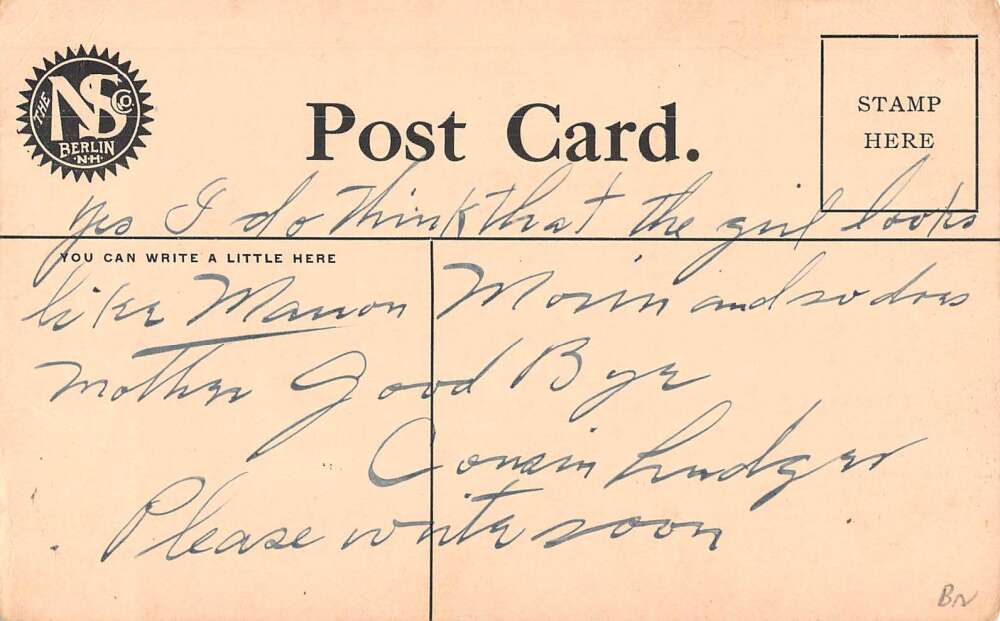 THE NS Co.
BERLIN
N.H.
Post Card.
STAMP
HERE
Yes I do think that the girl looks
YOU CAN WRITE A LITTLE HERE
like Marion Morin and so does
Mother Good Bye
Cousin Ludger
Please write soon
BN